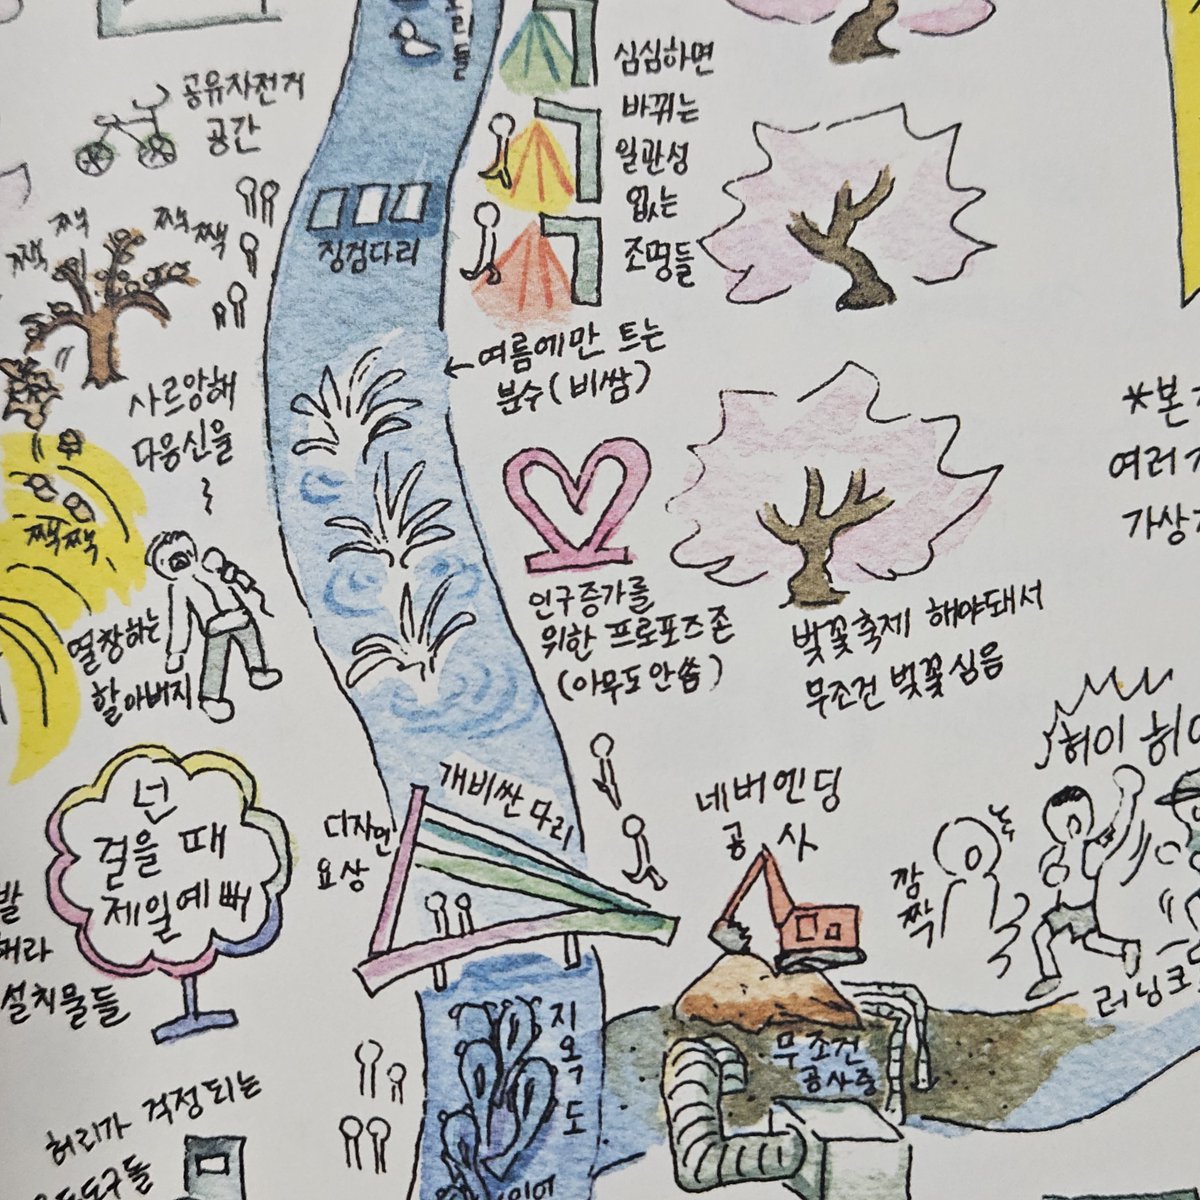 공유자전거
공간
심심하면
바뀌는
일관성
없는
조명들
징검다리
짹
짹
짹
짹
← 여름에만 트는
분수(비쌈)
사르앙해
다응신을
짹짹
열창하는
할아버지
인구증가를
위한 프로포즈존
(아무도 안씀)
벚꽃축제 해야돼서
무조건 벚꽃심음
*본
여러
가상
넌
걸을 때
제일예뻐
설치물들
디자인
요상
개비싼 다리
네버엔딩
공사
깜
짝
허이 허이
러닝크
지옥도
무조건
공사중
허리가 걱정되는